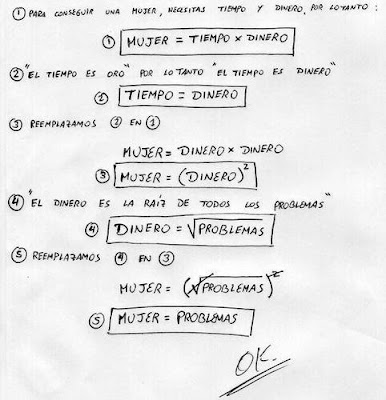 ① PARA CONSEGUIR UNA MUJER, NECESITAS TIEMPO Y DINERO, POR LO TANTO :
① MUJER = TIEMPO × DINERO
② "EL TIEMPO ES ORO" POR LO TANTO "EL TIEMPO ES DINERO"
② TIEMPO = DINERO
③ REEMPLAZAMOS ② EN ①
MUJER = DINERO × DINERO
③ MUJER = (DINERO)²
④ "EL DINERO ES LA RAÍZ DE TODOS LOS PROBLEMAS"
④ DINERO = √PROBLEMAS
⑤ REEMPLAZAMOS ④ EN ③
MUJER = (√PROBLEMAS)²
⑤ MUJER = PROBLEMAS
OK.